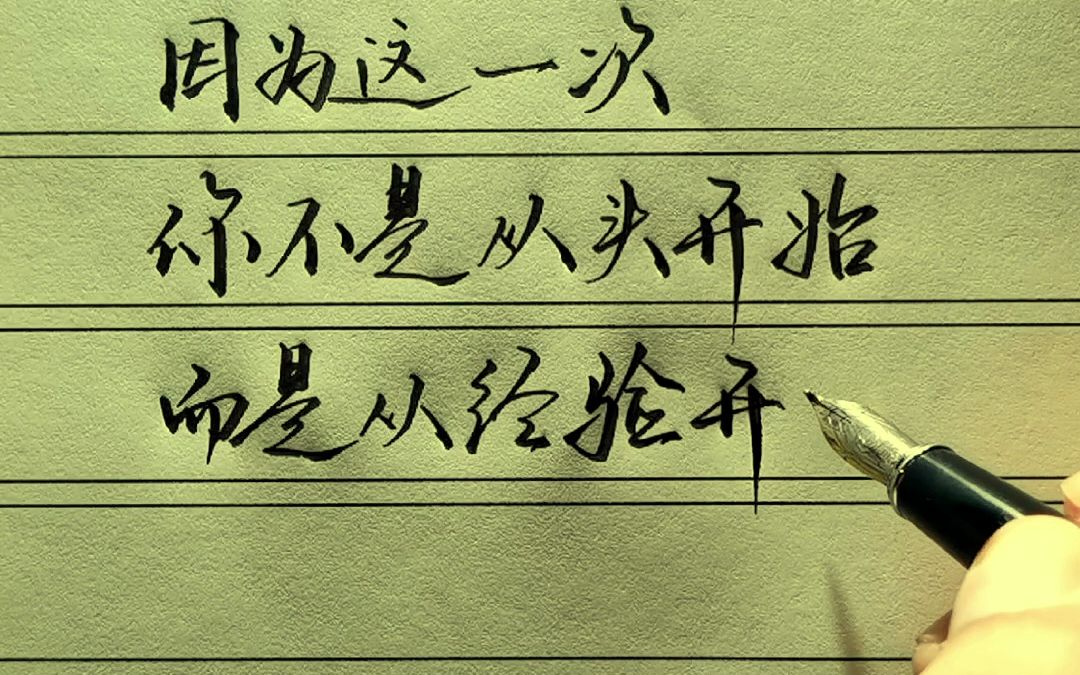 因为这一次
你不是从头开始
而是从经验开